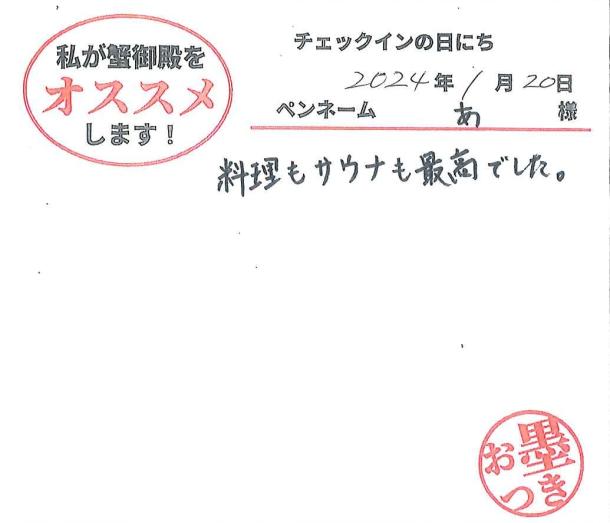 私が蟹御殿を
オススメ
します!
チェックインの日にち
2024年1月20日
ペンネーム あ 様
料理もサウナも最高でした。
お墨
つき